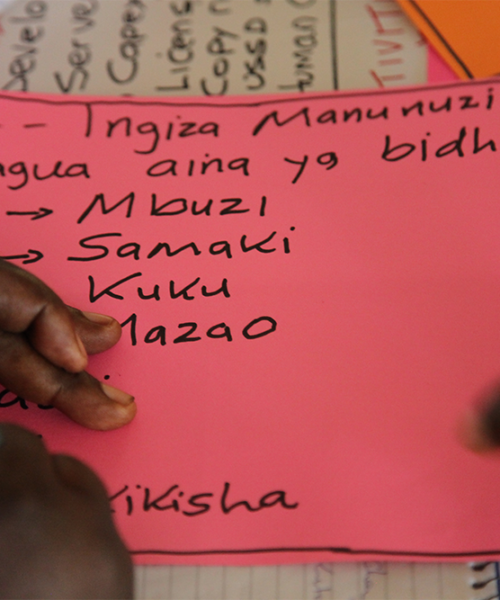 Develo
Serve
Capex
Licens
Copy n
USSD
Human C
TIVITI
- - Ingiza Manunuzi
ngua aina ya bidh
→ Mbuzi
→ Samaki
Kuku
Mazao
kikisha